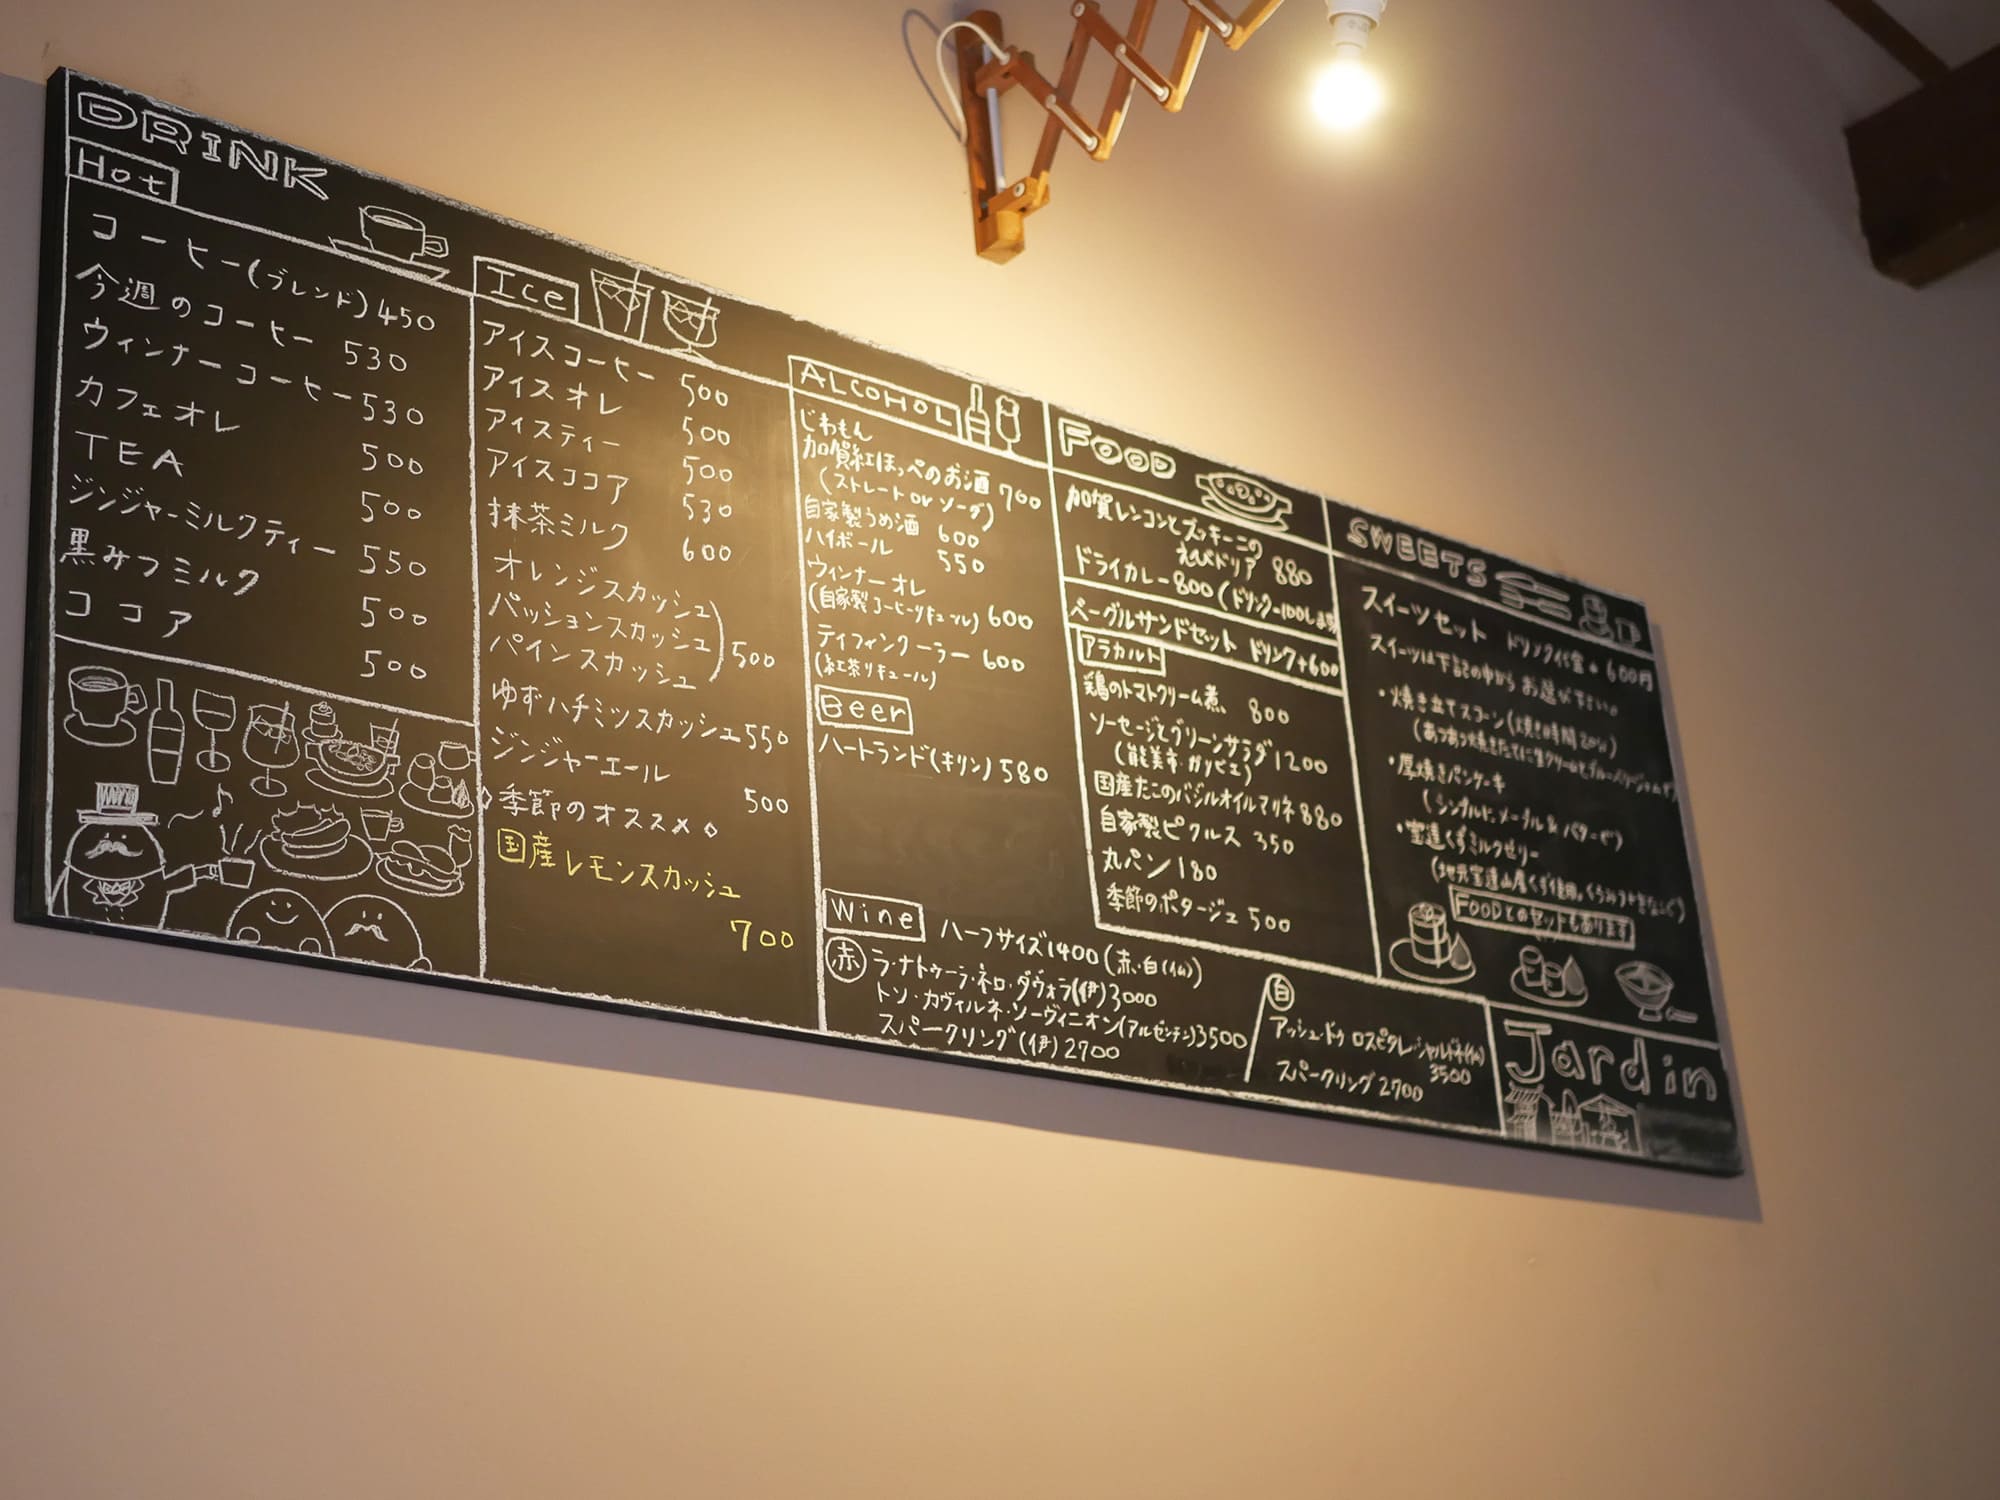 DRINK
Hot
コーヒー(ブレンド) 450
今週のコーヒー 530
ウィンナーコーヒー 530
カフェオレ 500
TEA 500
ジンジャーミルクティー 550
黒みつミルク 500
ココア 500
Ice
アイスコーヒー 500
アイスオレ 500
アイスティー 500
アイスココア 530
抹茶ミルク 600
オレンジスカッシュ
パッションスカッシュ
パインスカッシュ
500
ゆずハチミツスカッシュ 550
ジンジャーエール 500
季節のオススメ
国産レモンスカッシュ
700
ALCOHOL
じわもん
加賀紅ほっぺのお酒 700
(ストレート or ソーダ)
自家製うめ酒 600
ハイボール 550
ウィンナーオレ
(自家製コーヒーリキュール) 600
ティフィンクーラー 600
(紅茶リキュール)
Beer
ハートランド(キリン) 580
Wine ハーフサイズ1400(赤・白(仏))
赤 ラ・ナトゥーラ・ネロ・ダヴォラ(伊) 3000
トソ・カヴィルネ・ソーヴィニオン(アルゼンチン) 3500
スパークリング(伊) 2700
白
アッシュ・ドゥ ロスピタレ・シャルドネ(仏)
3500
スパークリング 2700
FOOD
加賀レンコンとズッキーニの
えびドリア 880
ドライカレー 800(ドリンク-100します
ベーグルサンドセット ドリンク+600
アラカルト
鶏のトマトクリーム煮 800
ソーセージとグリーンサラダ 1200
(能美市・ガリビエ)
国産たこのバジルオイルマリネ 880
自家製ピクルス 350
丸パン 180
季節のポタージュ 500
SWEETS
スイーツセット ドリンク代金+600円
スイーツは下記の中からお選び下さい。
・焼き立てスコーン(焼き時間20分)
(あつあつ焼きたてに生クリームとブルーベリージャムで)
・厚焼きパンケーキ
(シンプルに、メープル&バターで)
・宝達くずミルクゼリー
(地元宝達山産くず使用。くろみつときなこで)
FOODとのセットもあります
Jardin